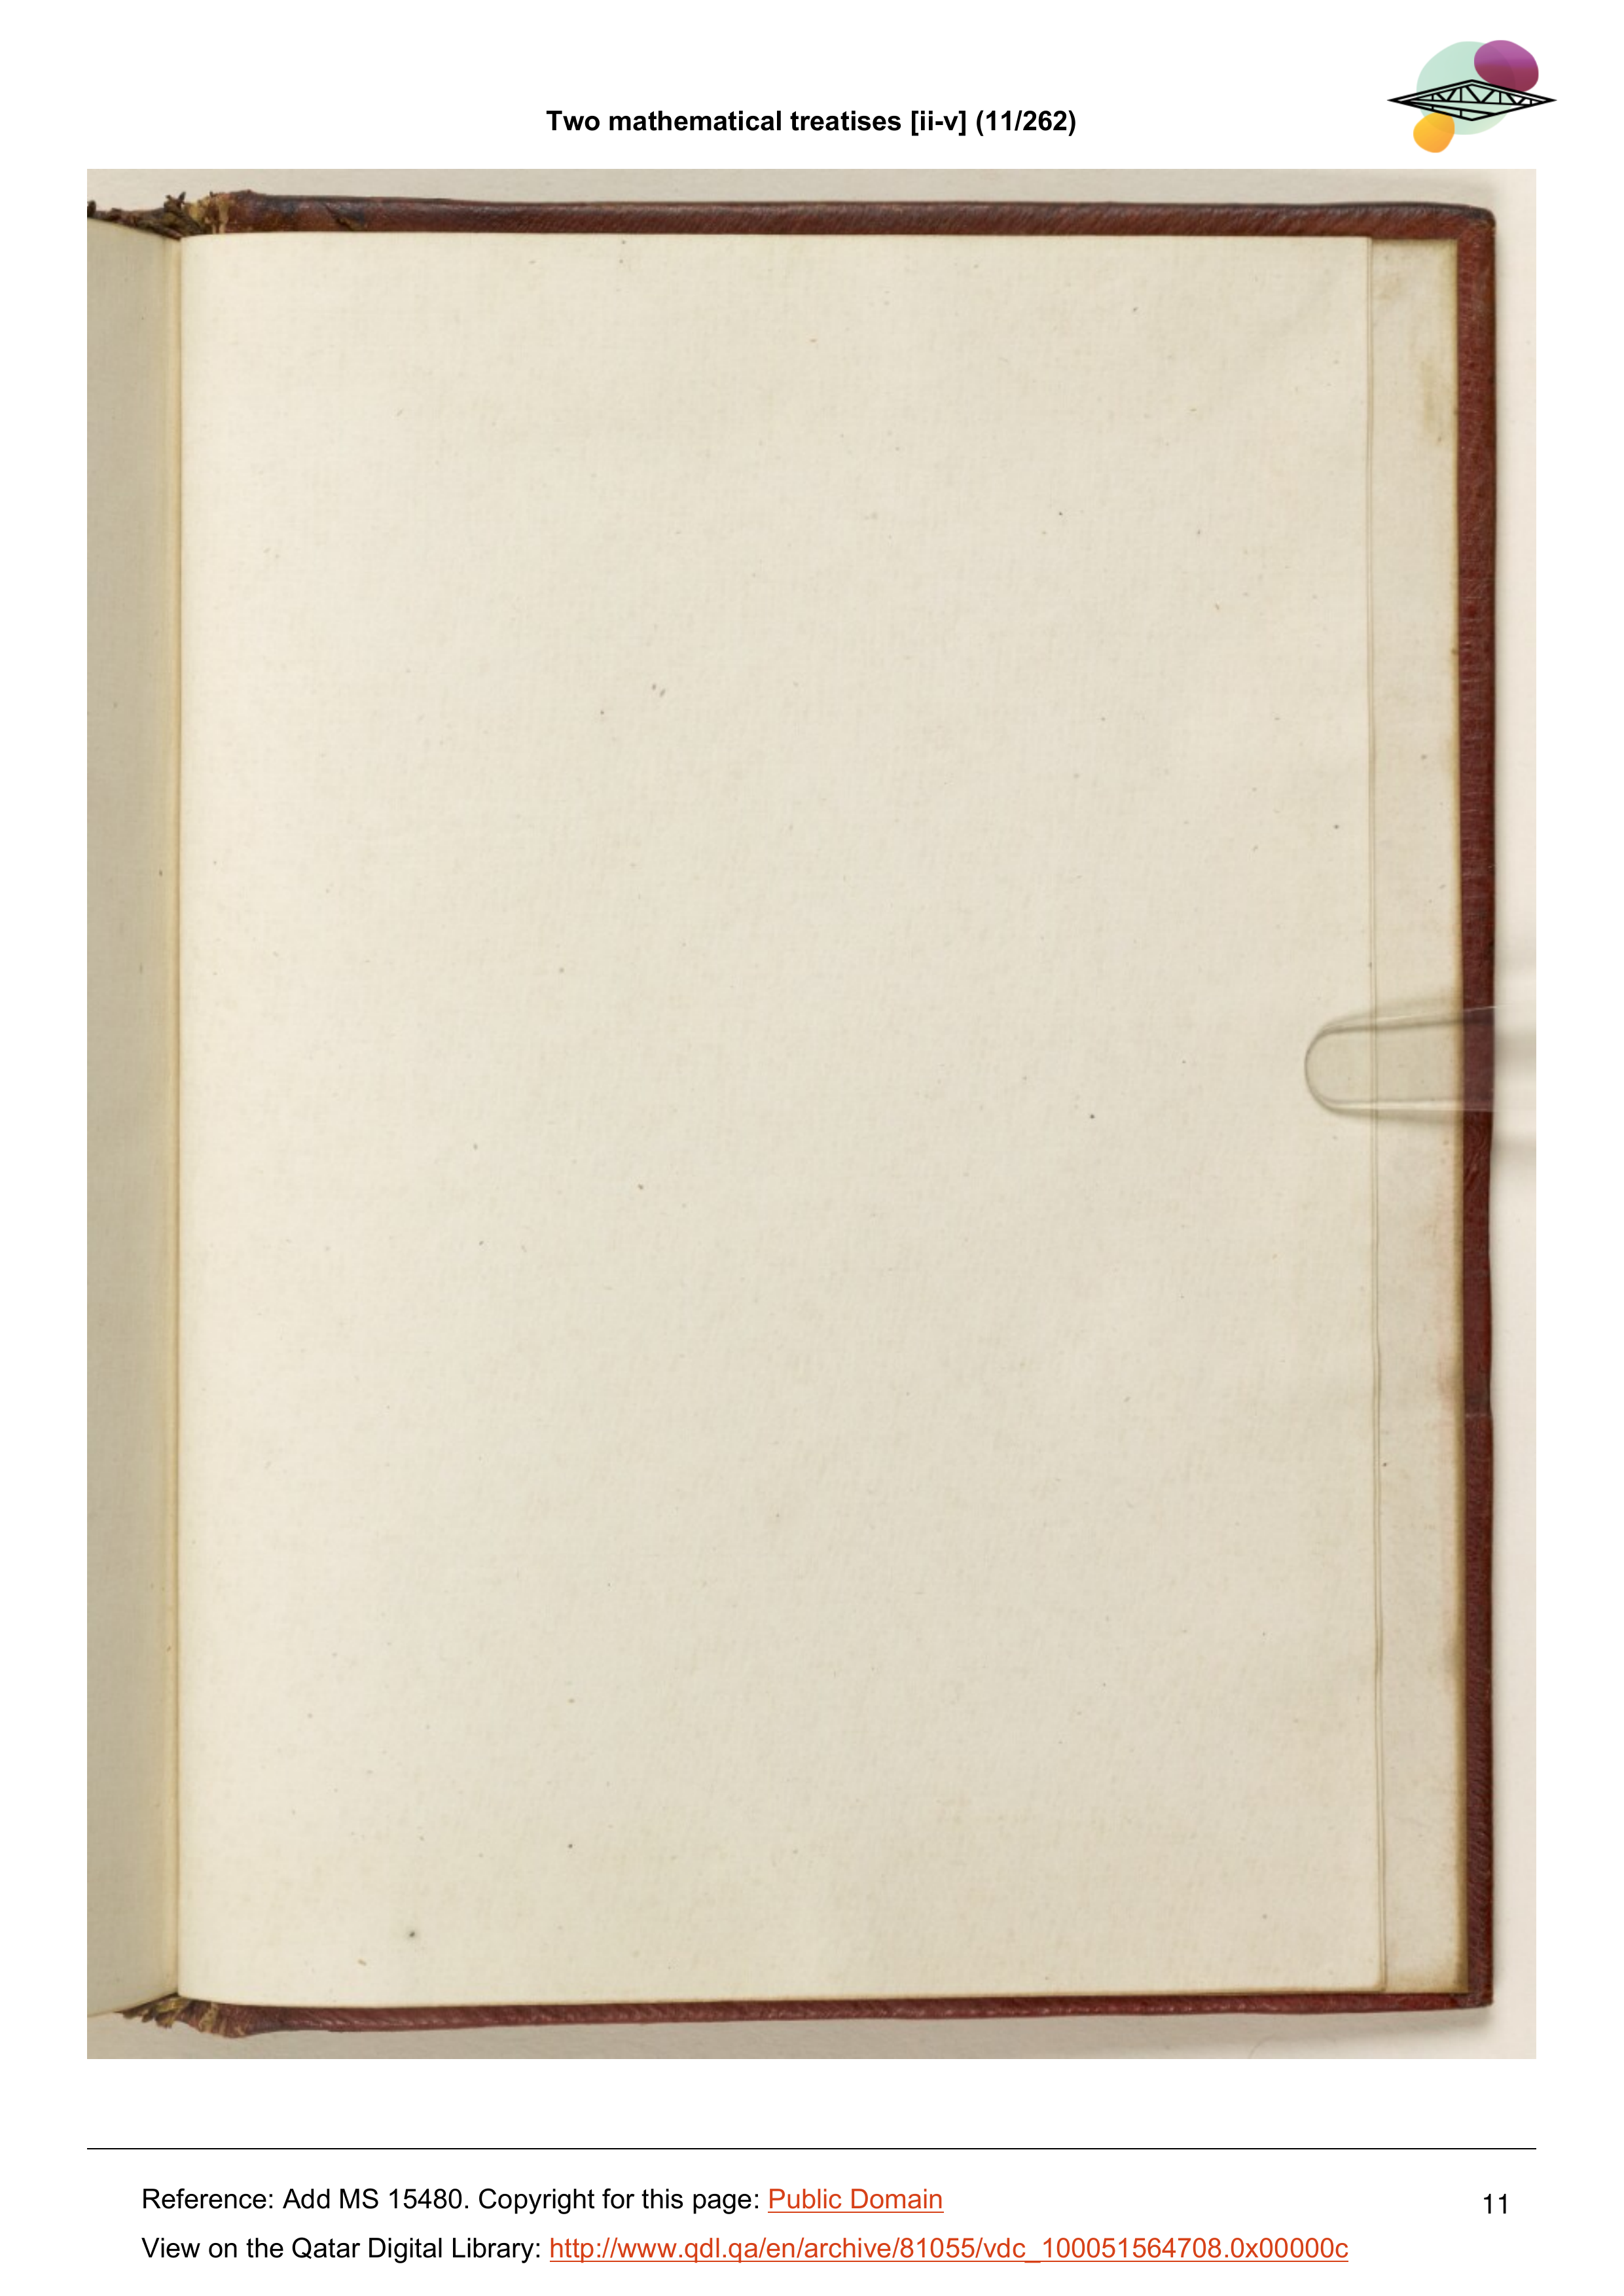 Two mathematical treatises [ii-v] (11/262)
Reference: Add MS 15480. Copyright for this page: Public Domain
11
View on the Qatar Digital Library: http://www.qdl.qa/en/archive/81055/vdc_100051564708.0x00000c